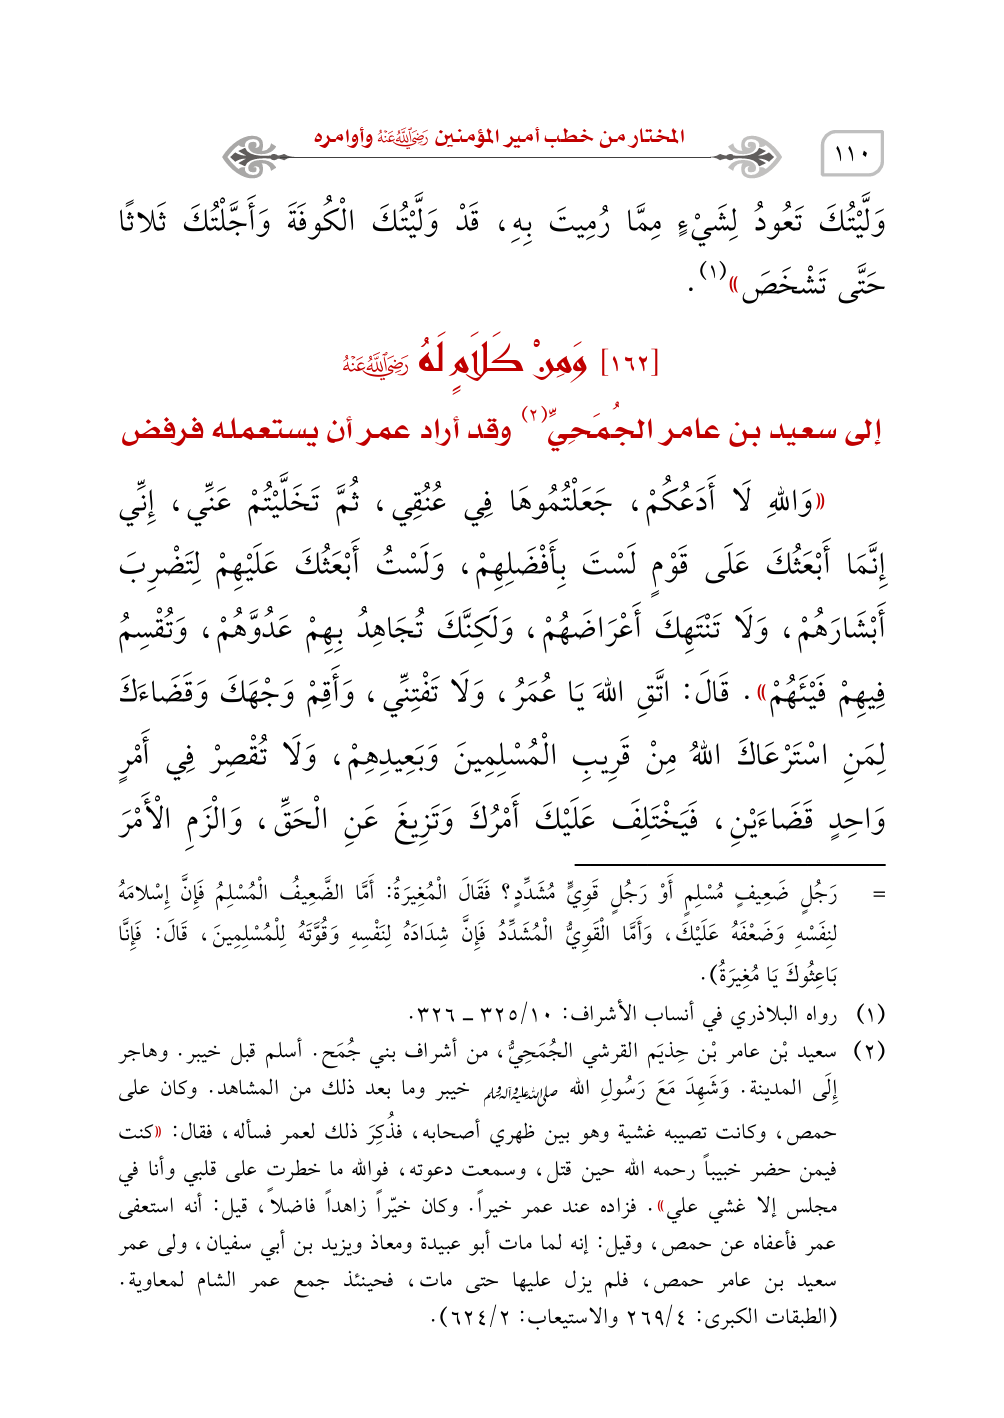 ١١٠
المختار من خطب أمير المؤمنين رَضِيَ اللَّهُ عَنْهُ وأوامره
وَلَّيْتُكَ تَعُودُ لِشَيْءٍ مِمَّا رُمِيتَ بِهِ، قَدْ وَلَّيْتُكَ الْكُوفَةَ وَأَجَّلْتُكَ ثَلاثًا
حَتَّى تَشْخَصَ»(١).
[١٦٢] وَمِنْ كَلَامٍ لَهُ رَضِيَ اللَّهُ عَنْهُ
إلى سعيد بن عامر الجُمَحِيِّ(٢) وقد أراد عمر أن يستعمله فرفض
«وَاللهِ لَا أَدَعُكُمْ، جَعَلْتُمُوهَا فِي عُنُقِي، ثُمَّ تَخَلَّيْتُمْ عَنِّي، إِنِّي
إِنَّمَا أَبْعَثُكَ عَلَى قَوْمٍ لَسْتَ بِأَفْضَلِهِمْ، وَلَسْتُ أَبْعَثُكَ عَلَيْهِمْ لِتَضْرِبَ
أَبْشَارَهُمْ، وَلَا تَنْتَهِكَ أَعْرَاضَهُمْ، وَلَكِنَّكَ تُجَاهِدُ بِهِمْ عَدُوَّهُمْ، وَتُقْسِمُ
فِيهِمْ فَيْئَهُمْ». قَالَ: اتَّقِ اللهَ يَا عُمَرُ، وَلَا تَفْتِنِّي، وَأَقِمْ وَجْهَكَ وَقَضَاءَكَ
لِمَنِ اسْتَرْعَاكَ اللهُ مِنْ قَرِيبِ الْمُسْلِمِينَ وَبَعِيدِهِمْ، وَلَا تُقْصِرْ فِي أَمْرٍ
وَاحِدٍ قَضَاءَيْنِ، فَيَخْتَلِفَ عَلَيْكَ أَمْرُكَ وَتَزِيغَ عَنِ الْحَقِّ، وَالْزَمِ الْأَمْرَ
= رَجُلٍ ضَعِيفٍ مُسْلِمٍ أَوْ رَجُلٍ قَوِيٍّ مُشَدِّدٍ؟ فَقَالَ الْمُغِيرَةُ: أَمَّا الضَّعِيفُ الْمُسْلِمُ فَإِنَّ إِسْلامَهُ
لنِفَسْهِ وَضَعْفَهُ عَلَيْكَ، وَأَمَّا الْقَوِيُّ الْمُشَدِّدُ فَإِنَّ شِدَادَهُ لِنَفْسِهِ وَقُوَّتَهُ لِلْمُسْلِمِينَ، قَالَ: فَإِنَّا
بَاعِثُوكَ يَا مُغِيرَةُ).
(١) رواه البلاذري في أنساب الأشراف: ٣٢٥/١٠ ـ ٣٢٦.
(٢) سعيد بْن عامر بْن حِذيَم القرشي الجُمَحِيُّ، من أشراف بني جُمَح. أسلم قبل خيبر. وهاجر
إِلَى المدينة. وَشَهِدَ مَعَ رَسُولِ الله صلى الله عليه وآله وسلم خيبر وما بعد ذلك من المشاهد. وكان على
حمص، وكانت تصيبه غشية وهو بين ظهري أصحابه، فذُكِرَ ذلك لعمر فسأله، فقال: «كنت
فيمن حضر خبيباً رحمه الله حين قتل، وسمعت دعوته، فوالله ما خطرت على قلبي وأنا في
مجلس إلا غشي علي». فزاده عند عمر خيراً. وكان خيّراً زاهداً فاضلاً، قيل: أنه استعفى
عمر فأعفاه عن حمص، وقيل: إنه لما مات أبو عبيدة ومعاذ ويزيد بن أبي سفيان، ولى عمر
سعيد بن عامر حمص، فلم يزل عليها حتى مات، فحينئذ جمع عمر الشام لمعاوية.
(الطبقات الكبرى: ٢٦٩/٤ والاستيعاب: ٦٢٤/٢).